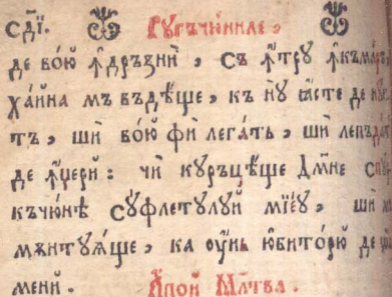 Ругъчю́ниле,
де вою́ ꙟдръзни́, съ ꙟтру ꙟкъмаръ,
ха́йна мъ въдѣ́ще, къ ну ꙗ́сте де
тъ, ши вою́ фи лега́ть, ши лепъдат
де ꙟџери: чи куръцѣ́ще Дм҃не спур
къчю́нѣ су́флетулуй мїеу, ши
мѫнтуꙗ́ще, ка ᲂу́нь юбито́рю де
мени. Апои Мл҃тва.